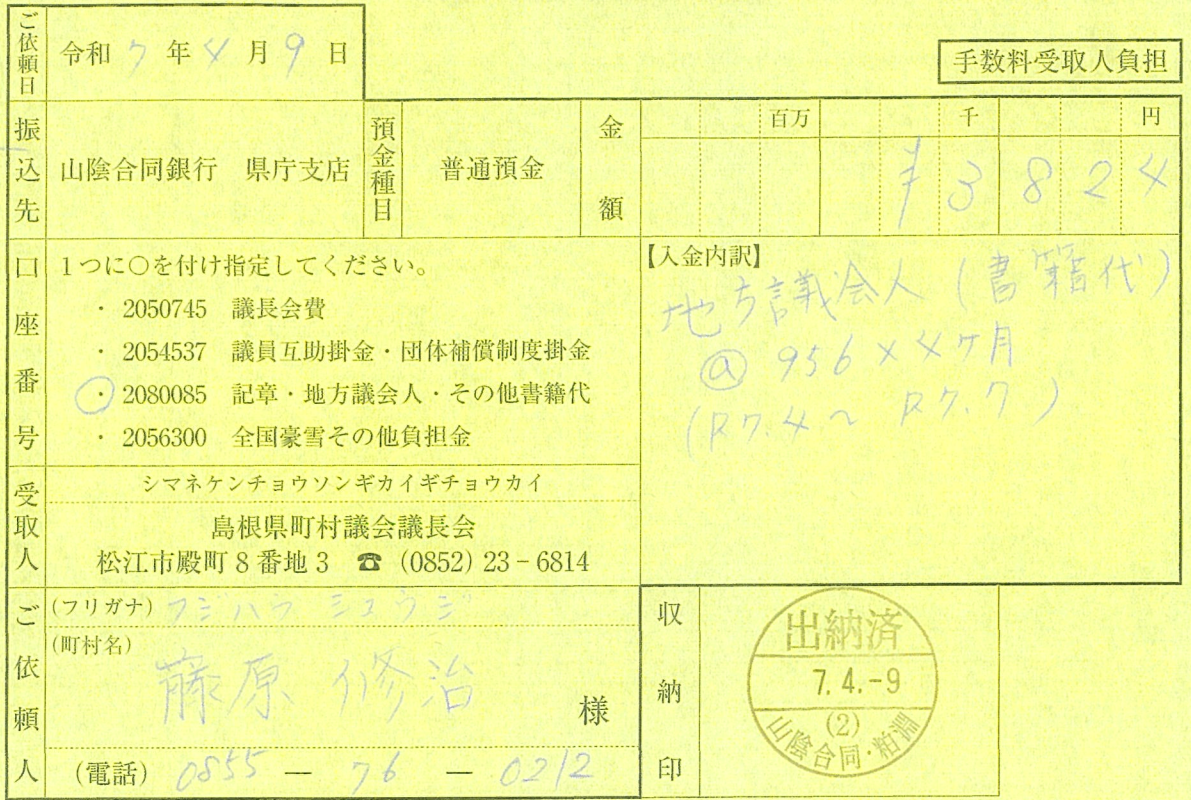 ご依頼日
令和 7 年 4 月 9 日
手数料受取人負担
振込先
山陰合同銀行 県庁支店
預金種目
普通預金
金額
百万 千 円
¥3824
口座番号
1つに○を付け指定してください。
・ 2050745 議長会費
・ 2054537 議員互助掛金・団体補償制度掛金
・ 2080085 記章・地方議会人・その他書籍代
・ 2056300 全国豪雪その他負担金
【入金内訳】
地方議会人(書籍代)
@ 956×4ヶ月
(R7.4～R7.7)
受取人
シマネケンチョウソンギカイギチョウカイ
島根県町村議会議長会
松江市殿町8番地3 ☎ (0852) 23－6814
ご依頼人
(フリガナ) フジハラ シュウジ
(町村名)
藤原 修治 様
(電話) 0855 ― 76 ― 0212
収納印
出納済
7.4.-9
(2)
山陰合同・粕淵